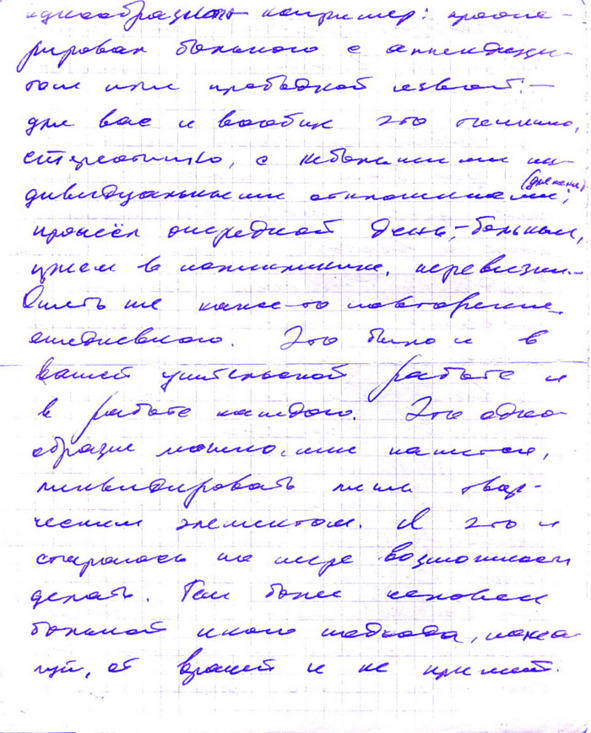 однообразного например: проопе-
рировал больного с аппендици-
том или прободной язвой:—
для вас и вообще это типично,
стереотипно, с небольшими ин-
дивидуальными отклонениями,
прошёл очередной день,- больным,
приём в поликлинике, перевязки.-
Опять же какое-то повторение
ежедневного. Это было и в
вашей учительской работе и
в работе каждого. Это одно-
образие можно, мне кажется,
ликвидировать лишь твор-
ческим элементом. Я это и
стараюсь по мере возможности
делать. Тем более человек
больной иного подхода, пожа-
луй, от врачей и не примет.